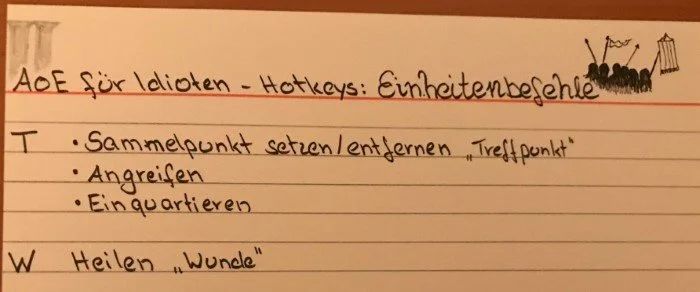 AoE für Idioten - Hotkeys: Einheitenbefehle
T • Sammelpunkt setzen/entfernen „Treffpunkt"
• Angreifen
• Einquartieren
W Heilen „Wunde"